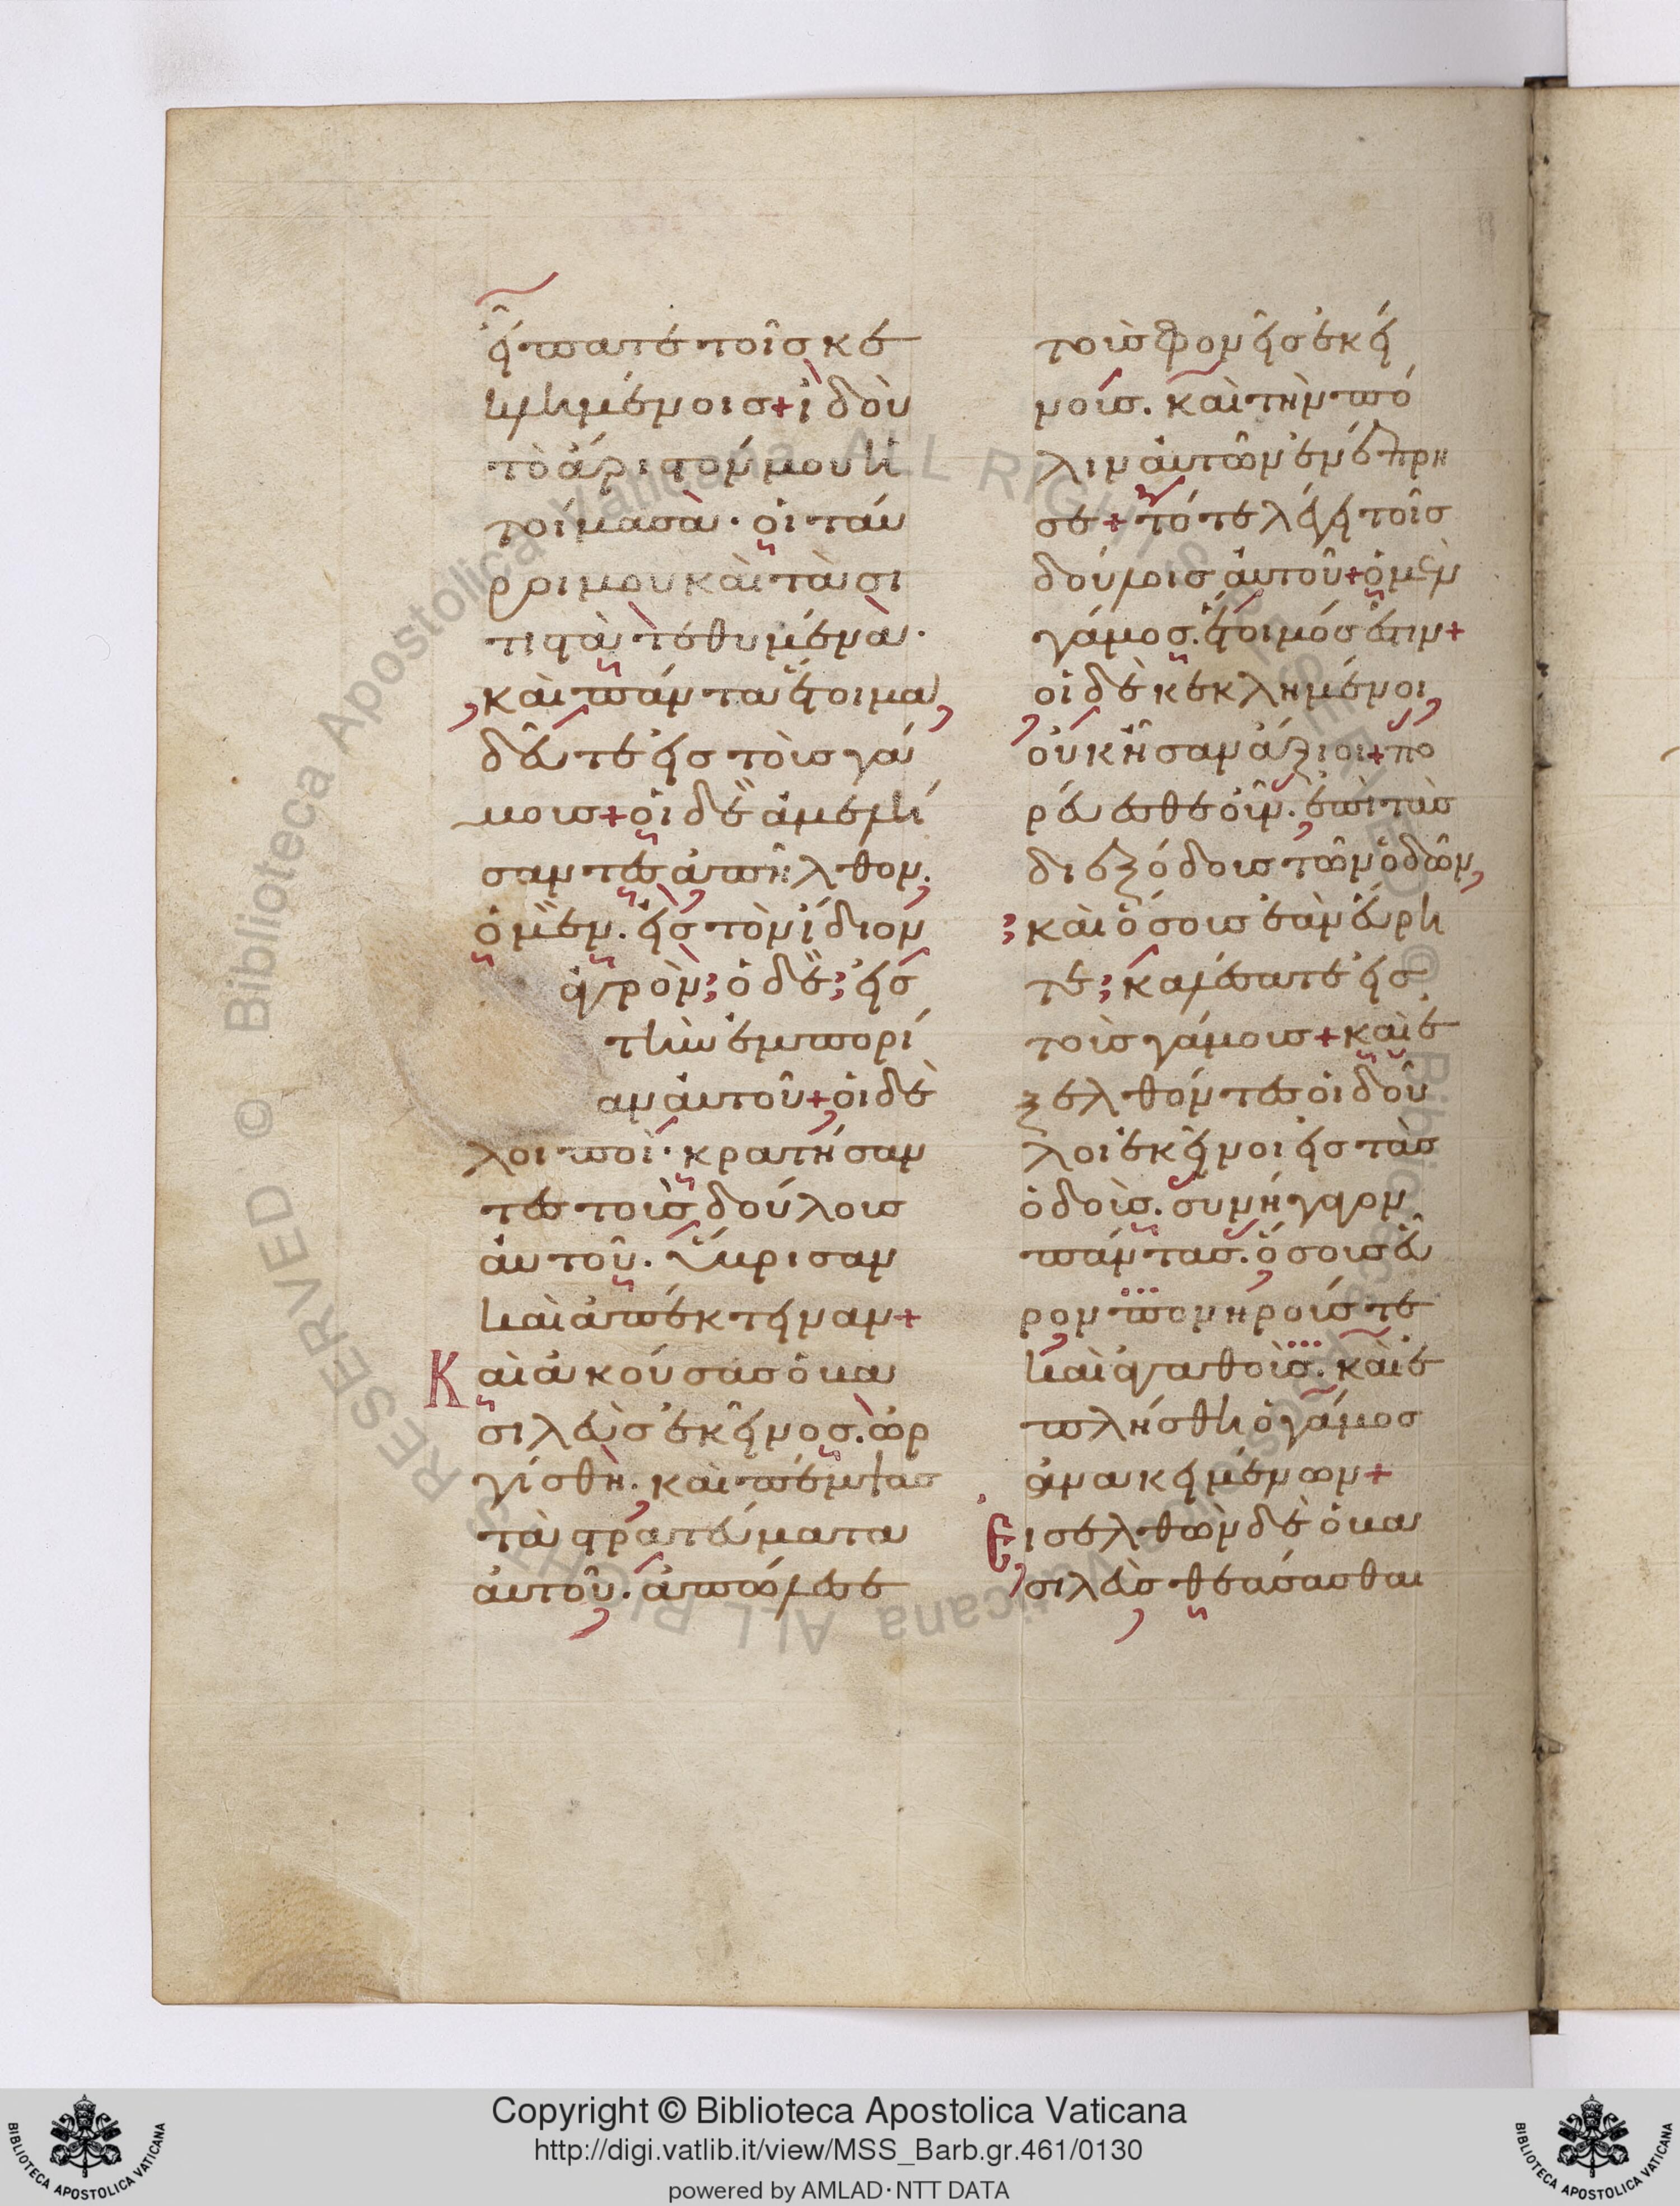 εἴπατε τοῖς κε
κλημένοις+ ἰδοὺ
τὸ ἄριστόν μου ἡ
τοίμασα· οἱ ταύ
ροι μου καὶ τὰ σι
τιστὰ τεθυμένα·
καὶ πάντα ἕτοιμα,
δεῦτε εἰς τοὺς γά
μους+ οἱ δὲ ἀμελή
σαντες ἀπῆλθον.
ὁ μὲν. εἰς τὸν ἴδιον
ἀγρόν; ὁ δὲ; εἰς
τὴν ἐμπορί
αν αὐτοῦ+ οἱ δὲ
λοιποὶ· κρατήσαν
τες τοὺς δούλους
αὐτοῦ. ὕβρισαν
καὶ ἀπέκτειναν+
Καὶ ἀκούσας ὁ βα
σιλεὺς ἐκεῖνος. ὠρ
γίσθη. καὶ πέμψας
τὰ στρατεύματα
αὐτοῦ. ἀπώλεσε
τοὺς φονεῖς ἐκεί
νους. καὶ τὴν πό
λιν αὐτῶν ἐνέπρη
σε+ τότε λέγει τοῖς
δούλοις αὐτοῦ+ ὁ μὲν
γάμος. ἕτοιμός ἐστιν+
οἱ δὲ κεκλημένοι,
οὐκ ἦσαν ἄξιοι+ πο
ρεύεσθε οὖν. ἐπὶ τὰς
διεξόδους τῶν ὁδῶν,
καὶ ὅσους ἐὰν εὕρη
τε; καλέσατε εἰς
τοὺς γάμους+ καὶ ἐ
ξελθόντες οἱ δοῦ
λοι ἐκεῖνοι εἰς τὰς
ὁδούς. συνήγαγον
πάντας. ὅσους εὗ
ρον πονηρούς τε
καὶ ἀγαθούς. καὶ ἐ
πλήσθη ὁ γάμος
ἀνακειμένων+
Εἰσελθὼν δὲ ὁ βα
σιλεὺς θεάσασθαι
Copyright © Biblioteca Apostolica Vaticana
http://digi.vatlib.it/view/MSS_Barb.gr.461/0130
powered by AMLAD·NTT DATA
BIBLIOTECA APOSTOLICA VATICANA
BIBLIOTECA APOSTOLICA VATICANA
© Biblioteca Apostolica Vaticana ALL RIGHTS RESERVED
© Biblioteca Apostolica Vaticana ALL RIGHTS RESERVED